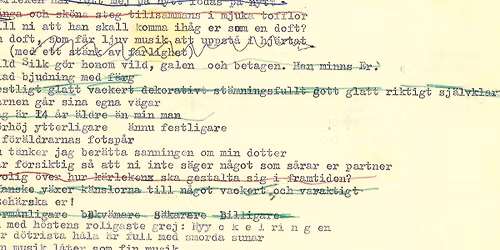 rleken har fått mej på nytt födas på nytt -
nga och sköna steg tillsammans i mjuka tofflor
ll ni att han skall komma ihåg er som en doft?
n doft, som får ljuv musik att uppstå i hjärtat
(med ett stänk av farlighet)
ld Silk gör honom vild, galen och betagen. Han minns Er.
ad bjudning med färg
estligt glatt vackert dekorativt stämningsfullt gott glatt riktigt självklar
arnen går sina egna vägar
g är 14 år äldre än min man
rhöj ytterligare ännu festligare
föräldrarnas fotspår
u tänker jag berätta sanningen om min dotter
r försiktig så att ni inte säger något som sårar er partner
rolig över hur kärleken ska gestalta sig i framtiden?
kanske växer känslorna till något vackert och varaktigt
sehärska er!
ormånligare bekvämare Säkarere Billigare
med höstens roligaste grej: Nyy o k e l r i n g e n
r dötrista håla är full med smorda sumar
n musik låter som fin musik